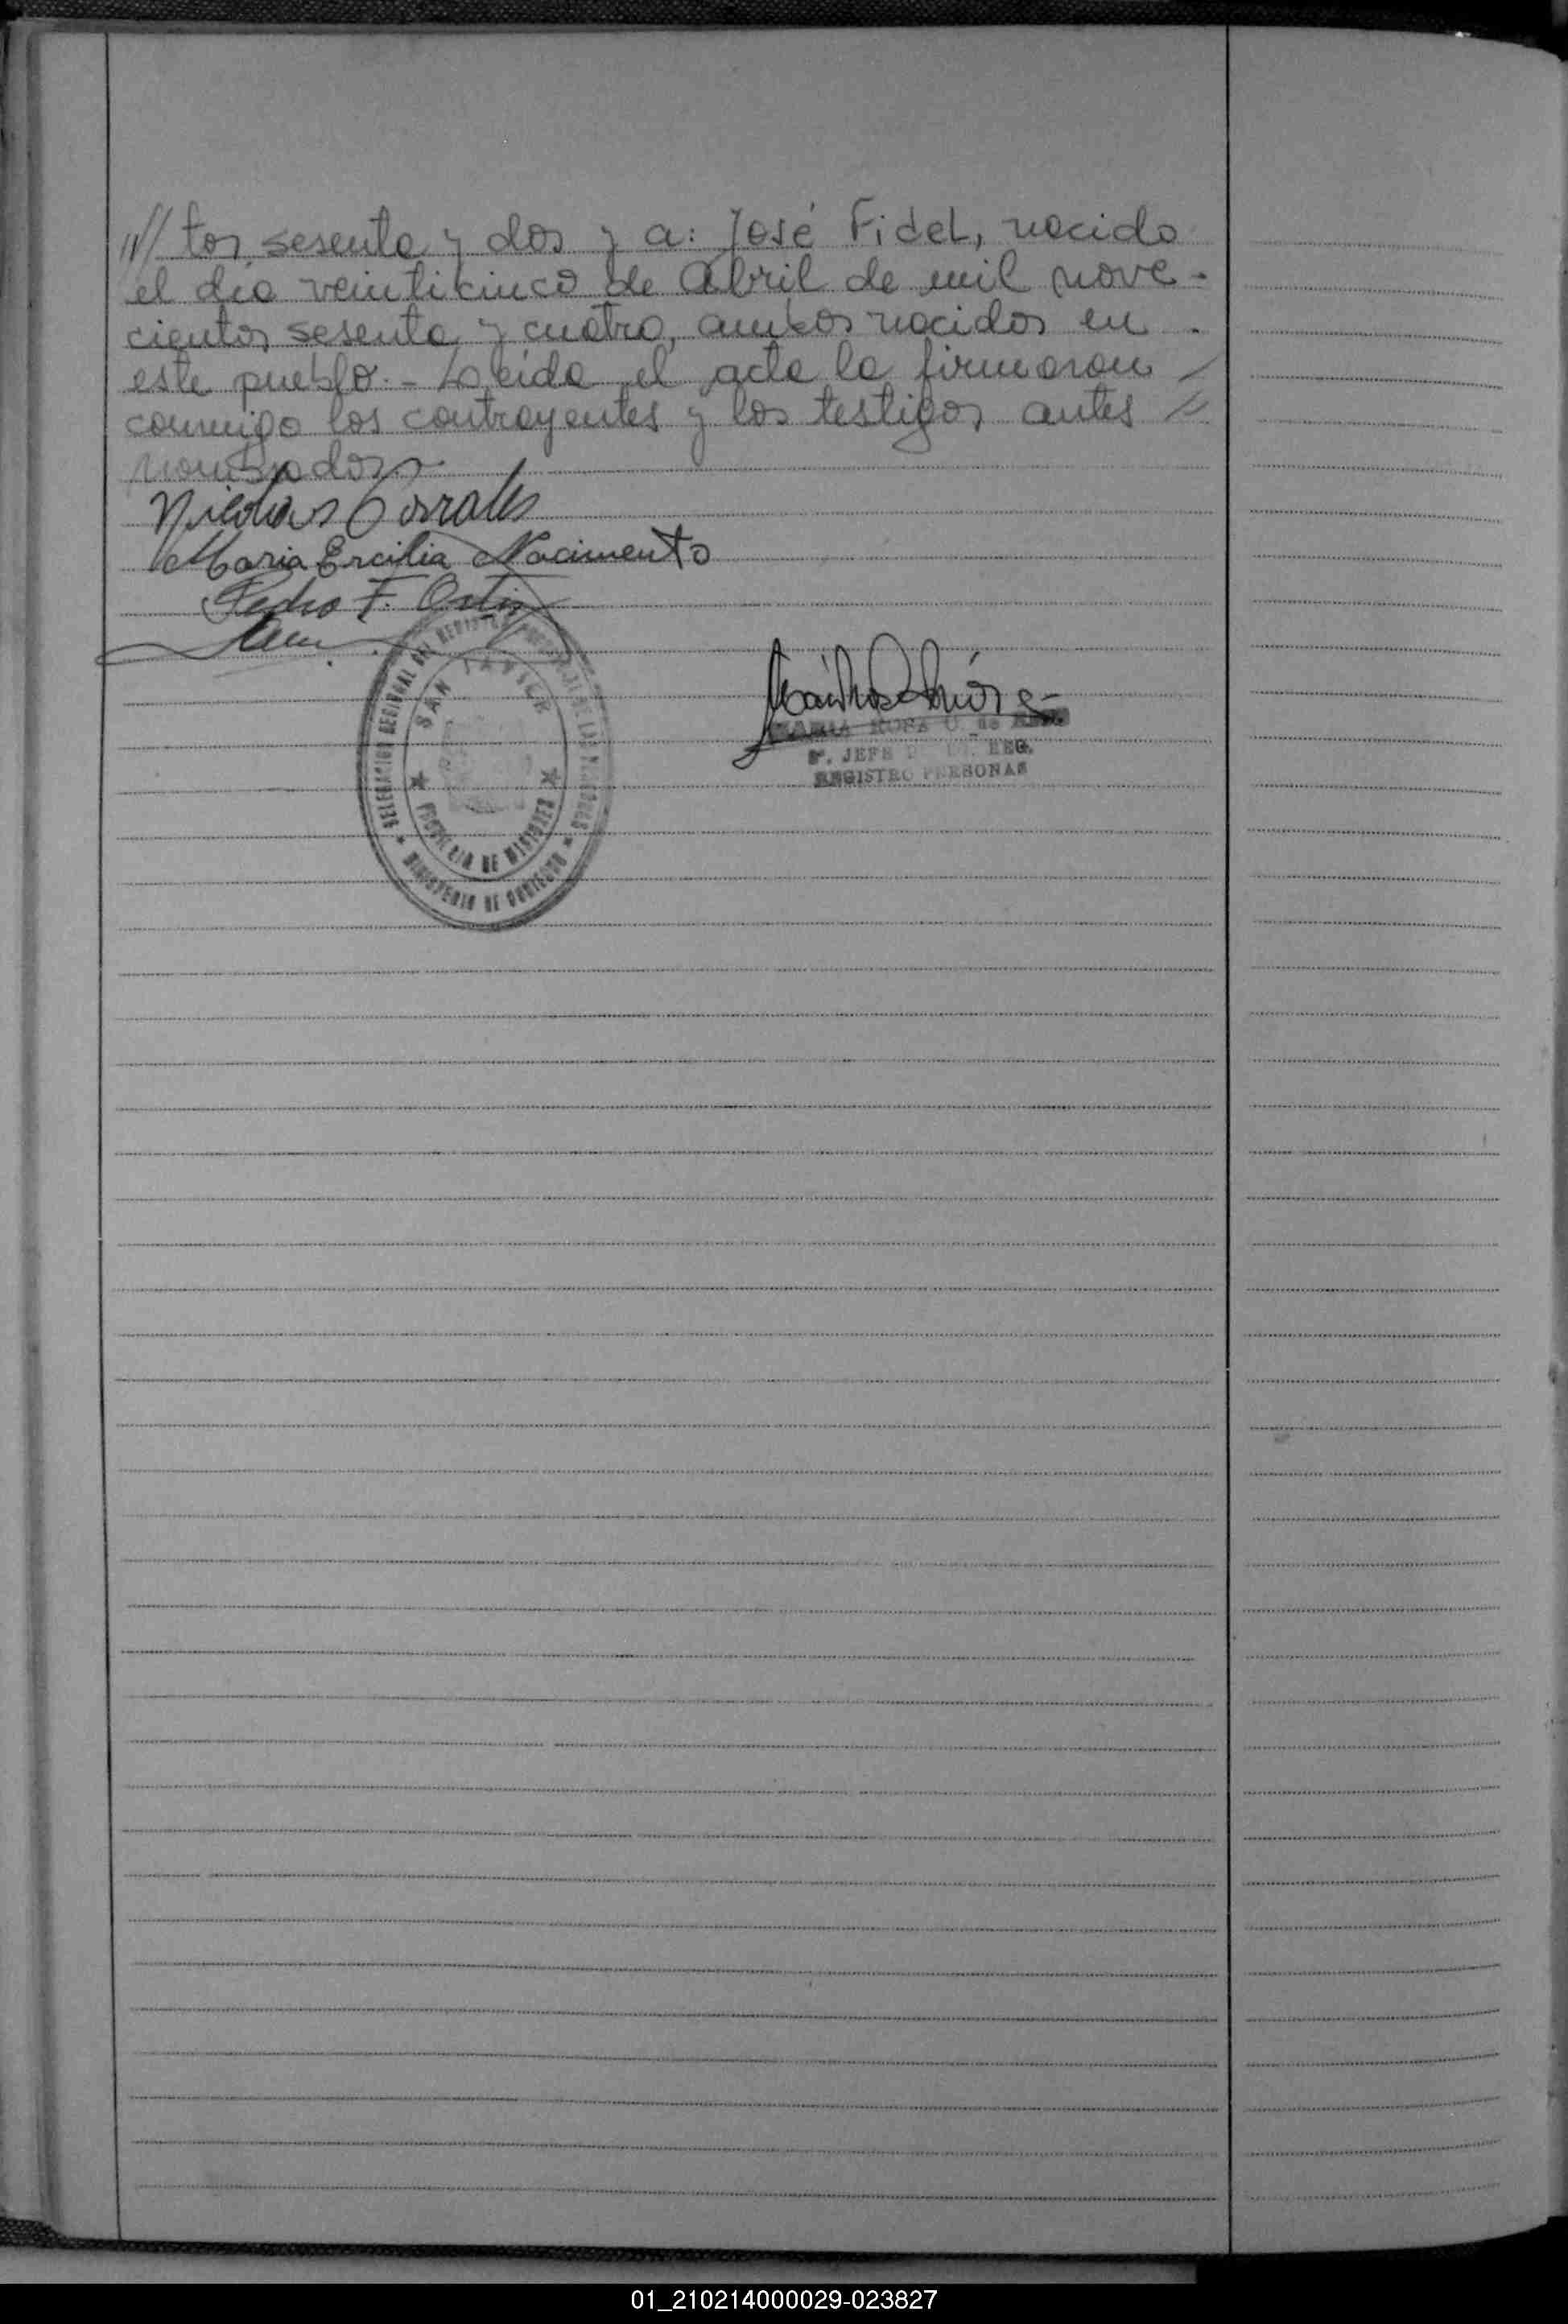 /// tos sesenta y dos y a: José Fidel, nacido
el día veinticinco de Abril de mil nove-
cientos sesenta y cuatro, ambos nacidos en
este pueblo.- Leída el acta la firmaron
conmigo los contrayentes y los testigos antes
nombrados
Nicolás Corrales
Maria Ercilia Nacimento
Pedro F. Ortiz
DELEGACION REGIONAL DEL REGISTRO PROVINCIAL DE LAS PERSONAS
SAN JAVIER
PROVINCIA DE MISIONES
MINISTERIO DE GOBIERNO
MARIA ROSA O. de
JEFE REG.
REGISTRO PERSONAS
01_210214000029-023827